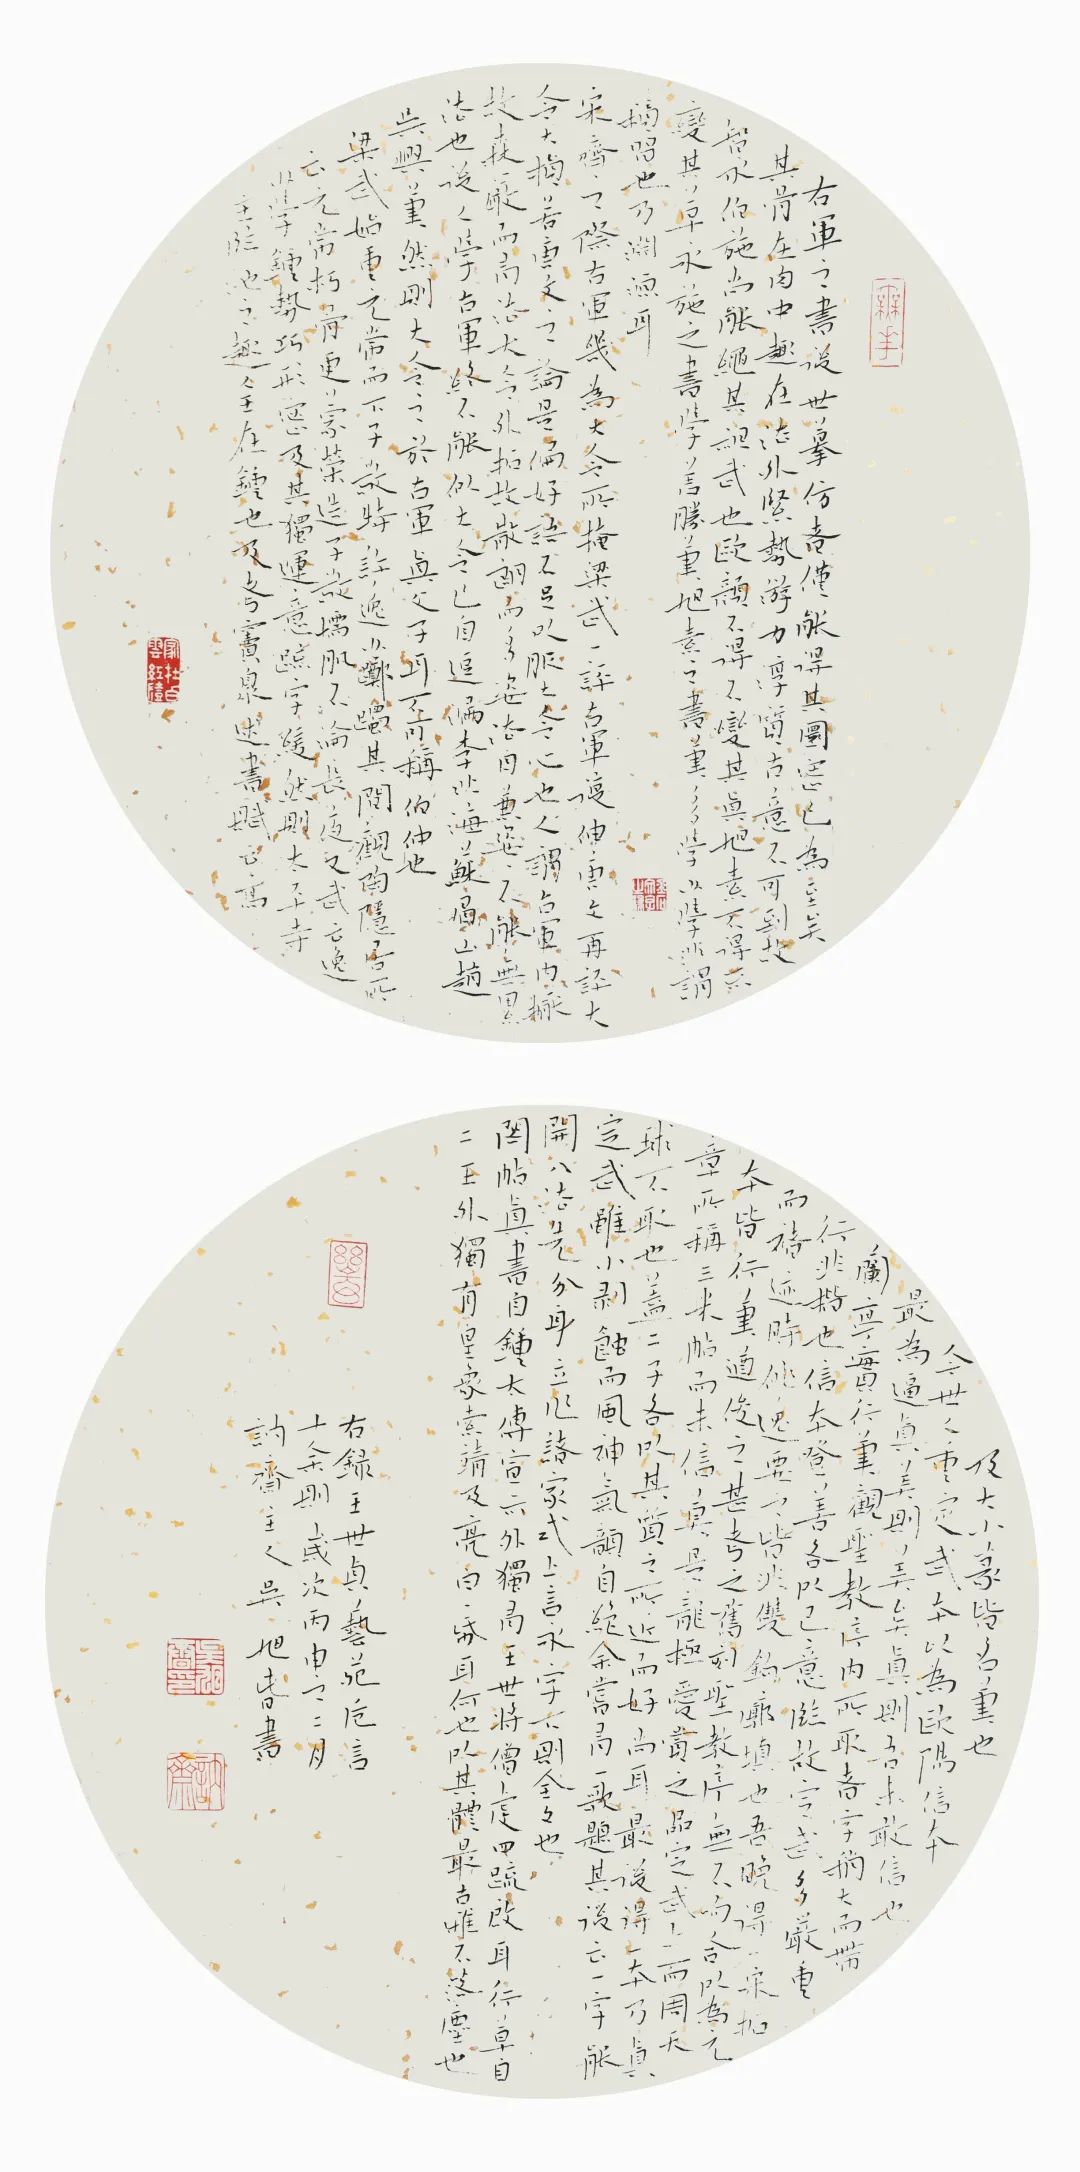 右軍之書後世摹仿者僅能得其圓密已為至矣
其骨在肉中趣在法外緊勢游力淳質古意不可到故
智永伯施尚能繩其祖武也歐顏不得不變其真旭素不得不
變其草永施之書學差勝筆旭素之書筆多學少學非謂
積習也乃淵源耳
宋齊之際右軍幾為大令所掩梁武一評右軍復伸唐文再詆大
令大損若唐文之論是偏好語不足以服大令心也人謂右軍內擫
故森嚴而有法大令外拓故散朗而多姿法自兼姿不能無累
法也後人學右軍終不能似大令已自逗漏李北海蘇眉山趙
吳興筆然則大令之於右軍真父子耳不可稱伯仲也
梁武始重元常而下子敬特許逸少躑躅其間觀陶隱居所
云元常朽骨更蒙榮造子敬懦肌不淪長夜又武云逸
少學鍾勢巧形密及其獨運意疏字緩然則太平寺
主臨池之趣全在鍾也及考竇泉述書賦云高
及大小篆皆名筆也
今世人重定武本以為歐陽信本
最為逼真美則美矣真則吾未敢信也
蘭亭實行筆觀聖教序內所取者字稍大而帶
行非楷也信本登善各以己意臨故定武多嚴重
而褚迹時佻逸要之皆非雙鉤廓填也吾晚得一宋拓
本皆行筆遒俊之甚考之舊刻聖教序無不吻合以為元
章所稱三米帖而未信真是龍極愛賞之品定武上而周天
球不取也蓋二子各以其質之所近而好尚耳最後得一本乃真
定武雖小剥蝕而風神氣韻自絕余嘗有一歌題其後云一字能
開八法先分身立作諸家式上言永字不則全文也
閣帖真書自鍾太傅宣示外獨有王世將僧虔四疏啟耳行草自
二王外獨有皇象索靖及亮白一紙耳何也以其體最古雅不落塵也
右錄王世貞藝苑卮言
十余則歲次丙申之二月
訥齋主人吳旭春書